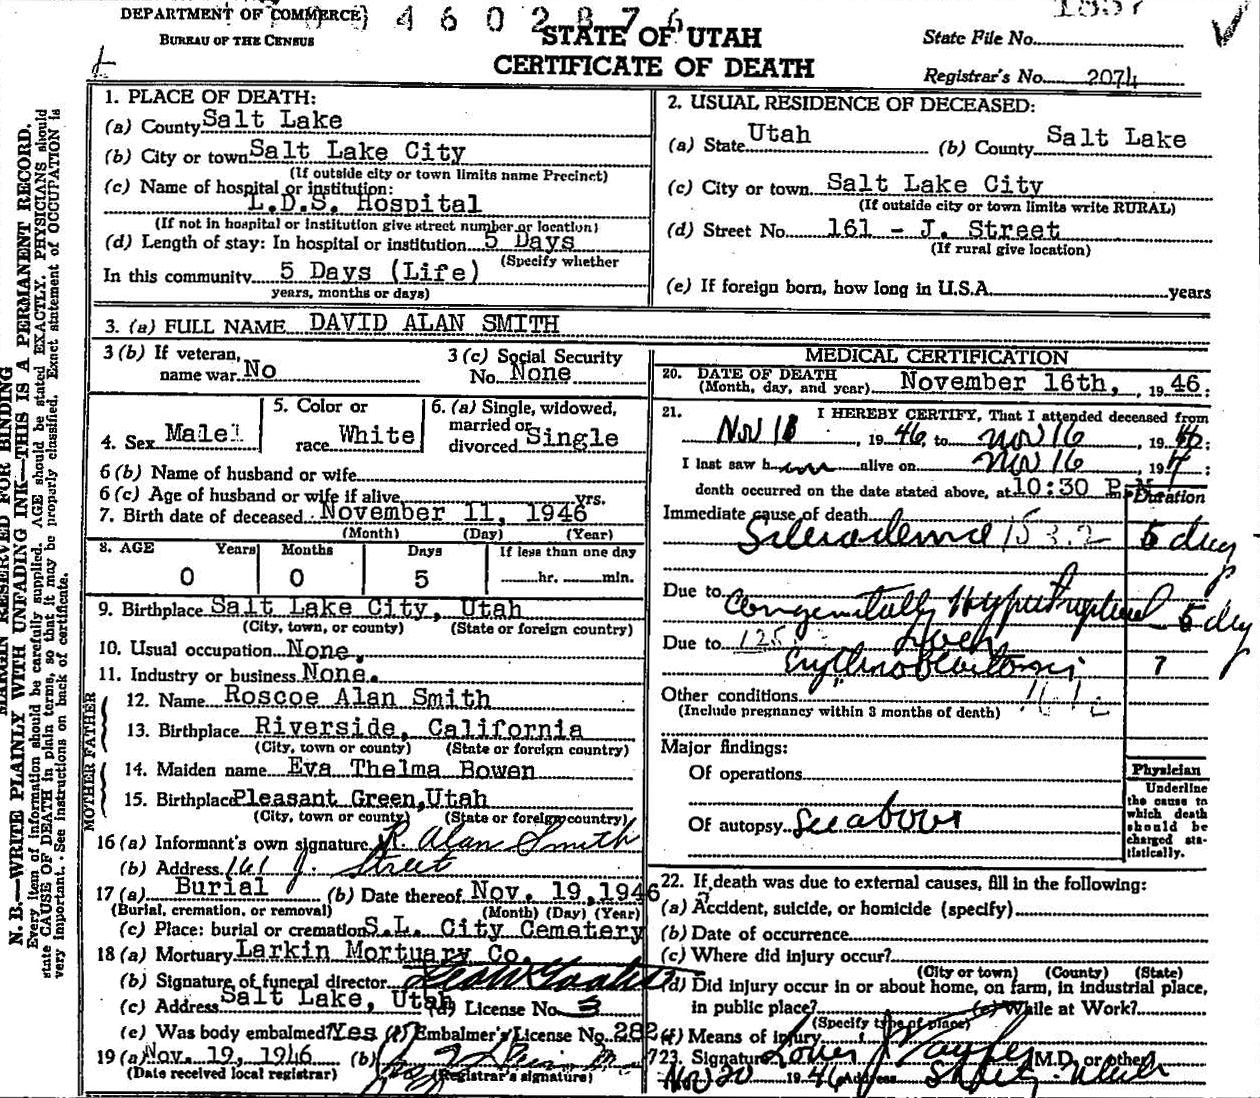 DEPARTMENT OF COMMERCE
4 6 0 2 8 7 6
BUREAU OF THE CENSUS
STATE OF UTAH
CERTIFICATE OF DEATH
State File No.
Registrar's No. 2074
MARGIN RESERVED FOR BINDING
N. B.—WRITE PLAINLY WITH UNFADING INK—THIS IS A PERMANENT RECORD.
Every item of information should be carefully supplied. AGE should be stated EXACTLY. PHYSICIANS should
state CAUSE OF DEATH in plain terms, so that it may be properly classified. Exact statement of OCCUPATION is
very important. See instructions on back of certificate.
1. PLACE OF DEATH:
(a) County Salt Lake
(b) City or town Salt Lake City
(If outside city or town limits name Precinct)
(c) Name of hospital or institution:
L.D.S. Hospital
(If not in hospital or institution give street number or location)
(d) Length of stay: In hospital or institution 5 Days
(Specify whether
In this community 5 Days (Life)
years, months or days)
2. USUAL RESIDENCE OF DECEASED:
(a) State Utah (b) County Salt Lake
(c) City or town Salt Lake City
(If outside city or town limits write RURAL)
(d) Street No. 161 - J. Street
(If rural give location)
(e) If foreign born, how long in U.S.A. years
3. (a) FULL NAME DAVID ALAN SMITH
3 (b) If veteran, name war No
3 (c) Social Security No. None
4. Sex Male
5. Color or race White
6. (a) Single, widowed, married or divorced Single
6 (b) Name of husband or wife
6 (c) Age of husband or wife if alive yrs.
7. Birth date of deceased November 11, 1946
(Month) (Day) (Year)
8. AGE Years Months Days If less than one day
0 0 5 hr. min.
9. Birthplace Salt Lake City, Utah
(City, town, or county) (State or foreign country)
10. Usual occupation None.
11. Industry or business None.
FATHER
12. Name Roscoe Alan Smith
13. Birthplace Riverside, California
(City, town or county) (State or foreign country)
MOTHER
14. Maiden name Eva Thelma Bowen
15. Birthplace Pleasant Green, Utah
(City, town or county) (State or foreign country)
16 (a) Informant's own signature R. Alan Smith
(b) Address 161 J. Street
17 (a) Burial (b) Date thereof Nov. 19, 1946
(Burial, cremation, or removal) (Month) (Day) (Year)
(c) Place: burial or cremation S.L. City Cemetery
18 (a) Mortuary Larkin Mortuary Co.
(b) Signature of funeral director
(c) Address Salt Lake, Utah (d) License No. 3
(e) Was body embalmed? Yes (f) Embalmer's License No. 282
19 (a) Nov. 19, 1946 (b)
(Date received local registrar) (Registrar's signature)
MEDICAL CERTIFICATION
20. DATE OF DEATH
(Month, day, and year) November 16th, 1946:
21. I HEREBY CERTIFY, That I attended deceased from
Nov 1946 to Nov 16, 1946:
I last saw him alive on Nov 16, 19
death occurred on the date stated above, at 10:30 P.M.
Duration
Immediate cause of death
Scleroderma 153.2 5 days
Due to Congenitally Hypertrophied 5 day
Due to liver
Erythroblastosis ?
Other conditions
(Include pregnancy within 3 months of death)
Major findings:
Of operations
Of autopsy See above
Physician
Underline
the cause to
which death
should be
charged sta-
tistically.
22. If death was due to external causes, fill in the following:
(a) Accident, suicide, or homicide (specify)
(b) Date of occurrence
(c) Where did injury occur?
(City or town) (County) (State)
(d) Did injury occur in or about home, on farm, in industrial place,
in public place? (e) While at Work?
(Specify type of place)
(f) Means of injury
23. Signature M.D. or other
Nov 20 1946 Address